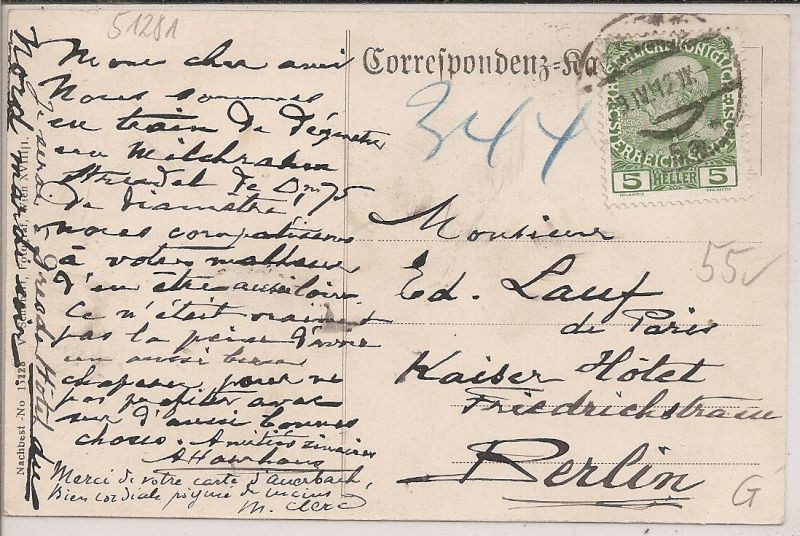 51281
Correspondenz-Ka
Mon cher ami
Nous sommes
en train de déguster
un Milchrahm
Strudel de 0m75
de diamètre
nous compatissons
à votre malheur
d'en être aussi loin.
Ce n'était vraiment
pas la peine d'avoir
un aussi beau
chapeau pour ne
pas profiter avec
sur d'aussi bonnes
choses. Amitiés
Merci de votre carte d'Auerbach,
Bien cordiale
M. Clerc
Je serai à Grand Hôtel du
Nord mardi
Nachbest.-No 15128
344
5 HELLER 5
Monsieur
Ed. Lauf
de Paris
Kaiser Hôtel
Friedrichstrasse
Berlin
55
G